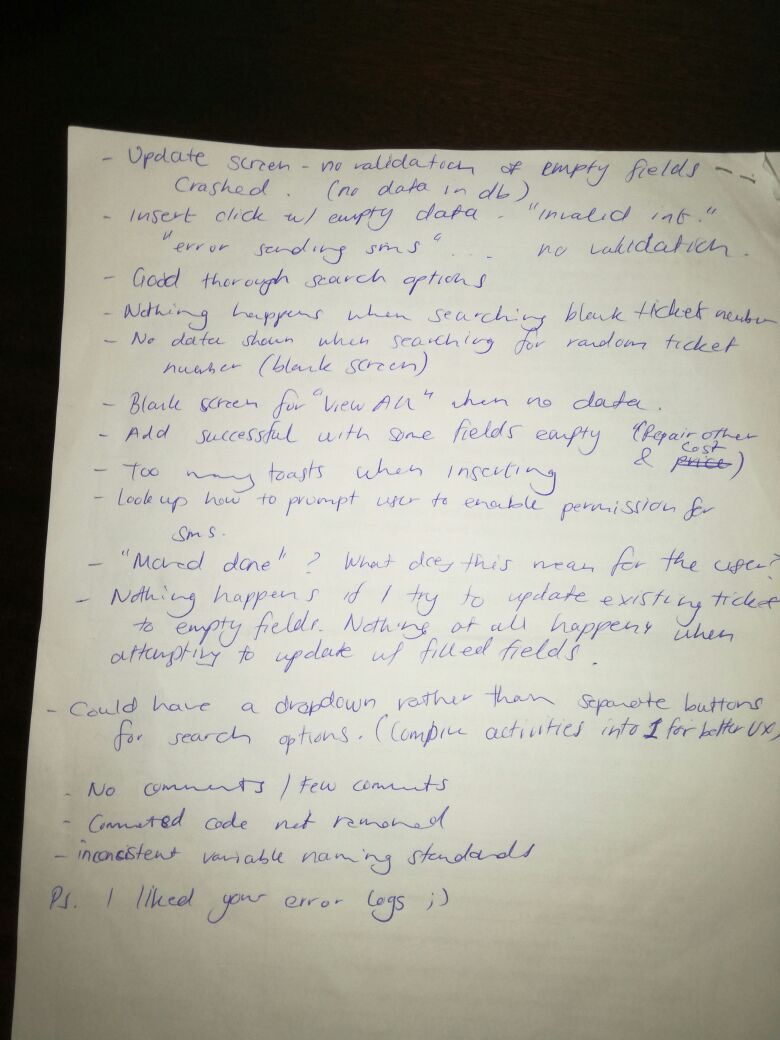 - Update screen - no validation of empty fields --.
Crashed. (no data in db)
- Insert click w/ empty data - "invalid int."
"error sending sms" .... no validation.
- Good thorough search options
- Nothing happens when searching blank ticket number
- No data shown when searching for random ticket
number (blank screen)
- Blank screen for "View All" when no data.
- Add successful with some fields empty (Repair other
& price cost)
- Too many toasts when inserting
- Look up how to prompt user to enable permission for
sms.
- "Moved done" ? What does this mean for the user?
- Nothing happens if I try to update existing ticket
to empty fields. Nothing at all happens when
attempting to update w/ filled fields.
- Could have a dropdown rather than separate buttons
for search options. (Combine activities into 1 for better UX)
- No comments / Few comments
- Commented code not removed
- inconsistent variable naming standards
Ps. I liked your error logs ;)